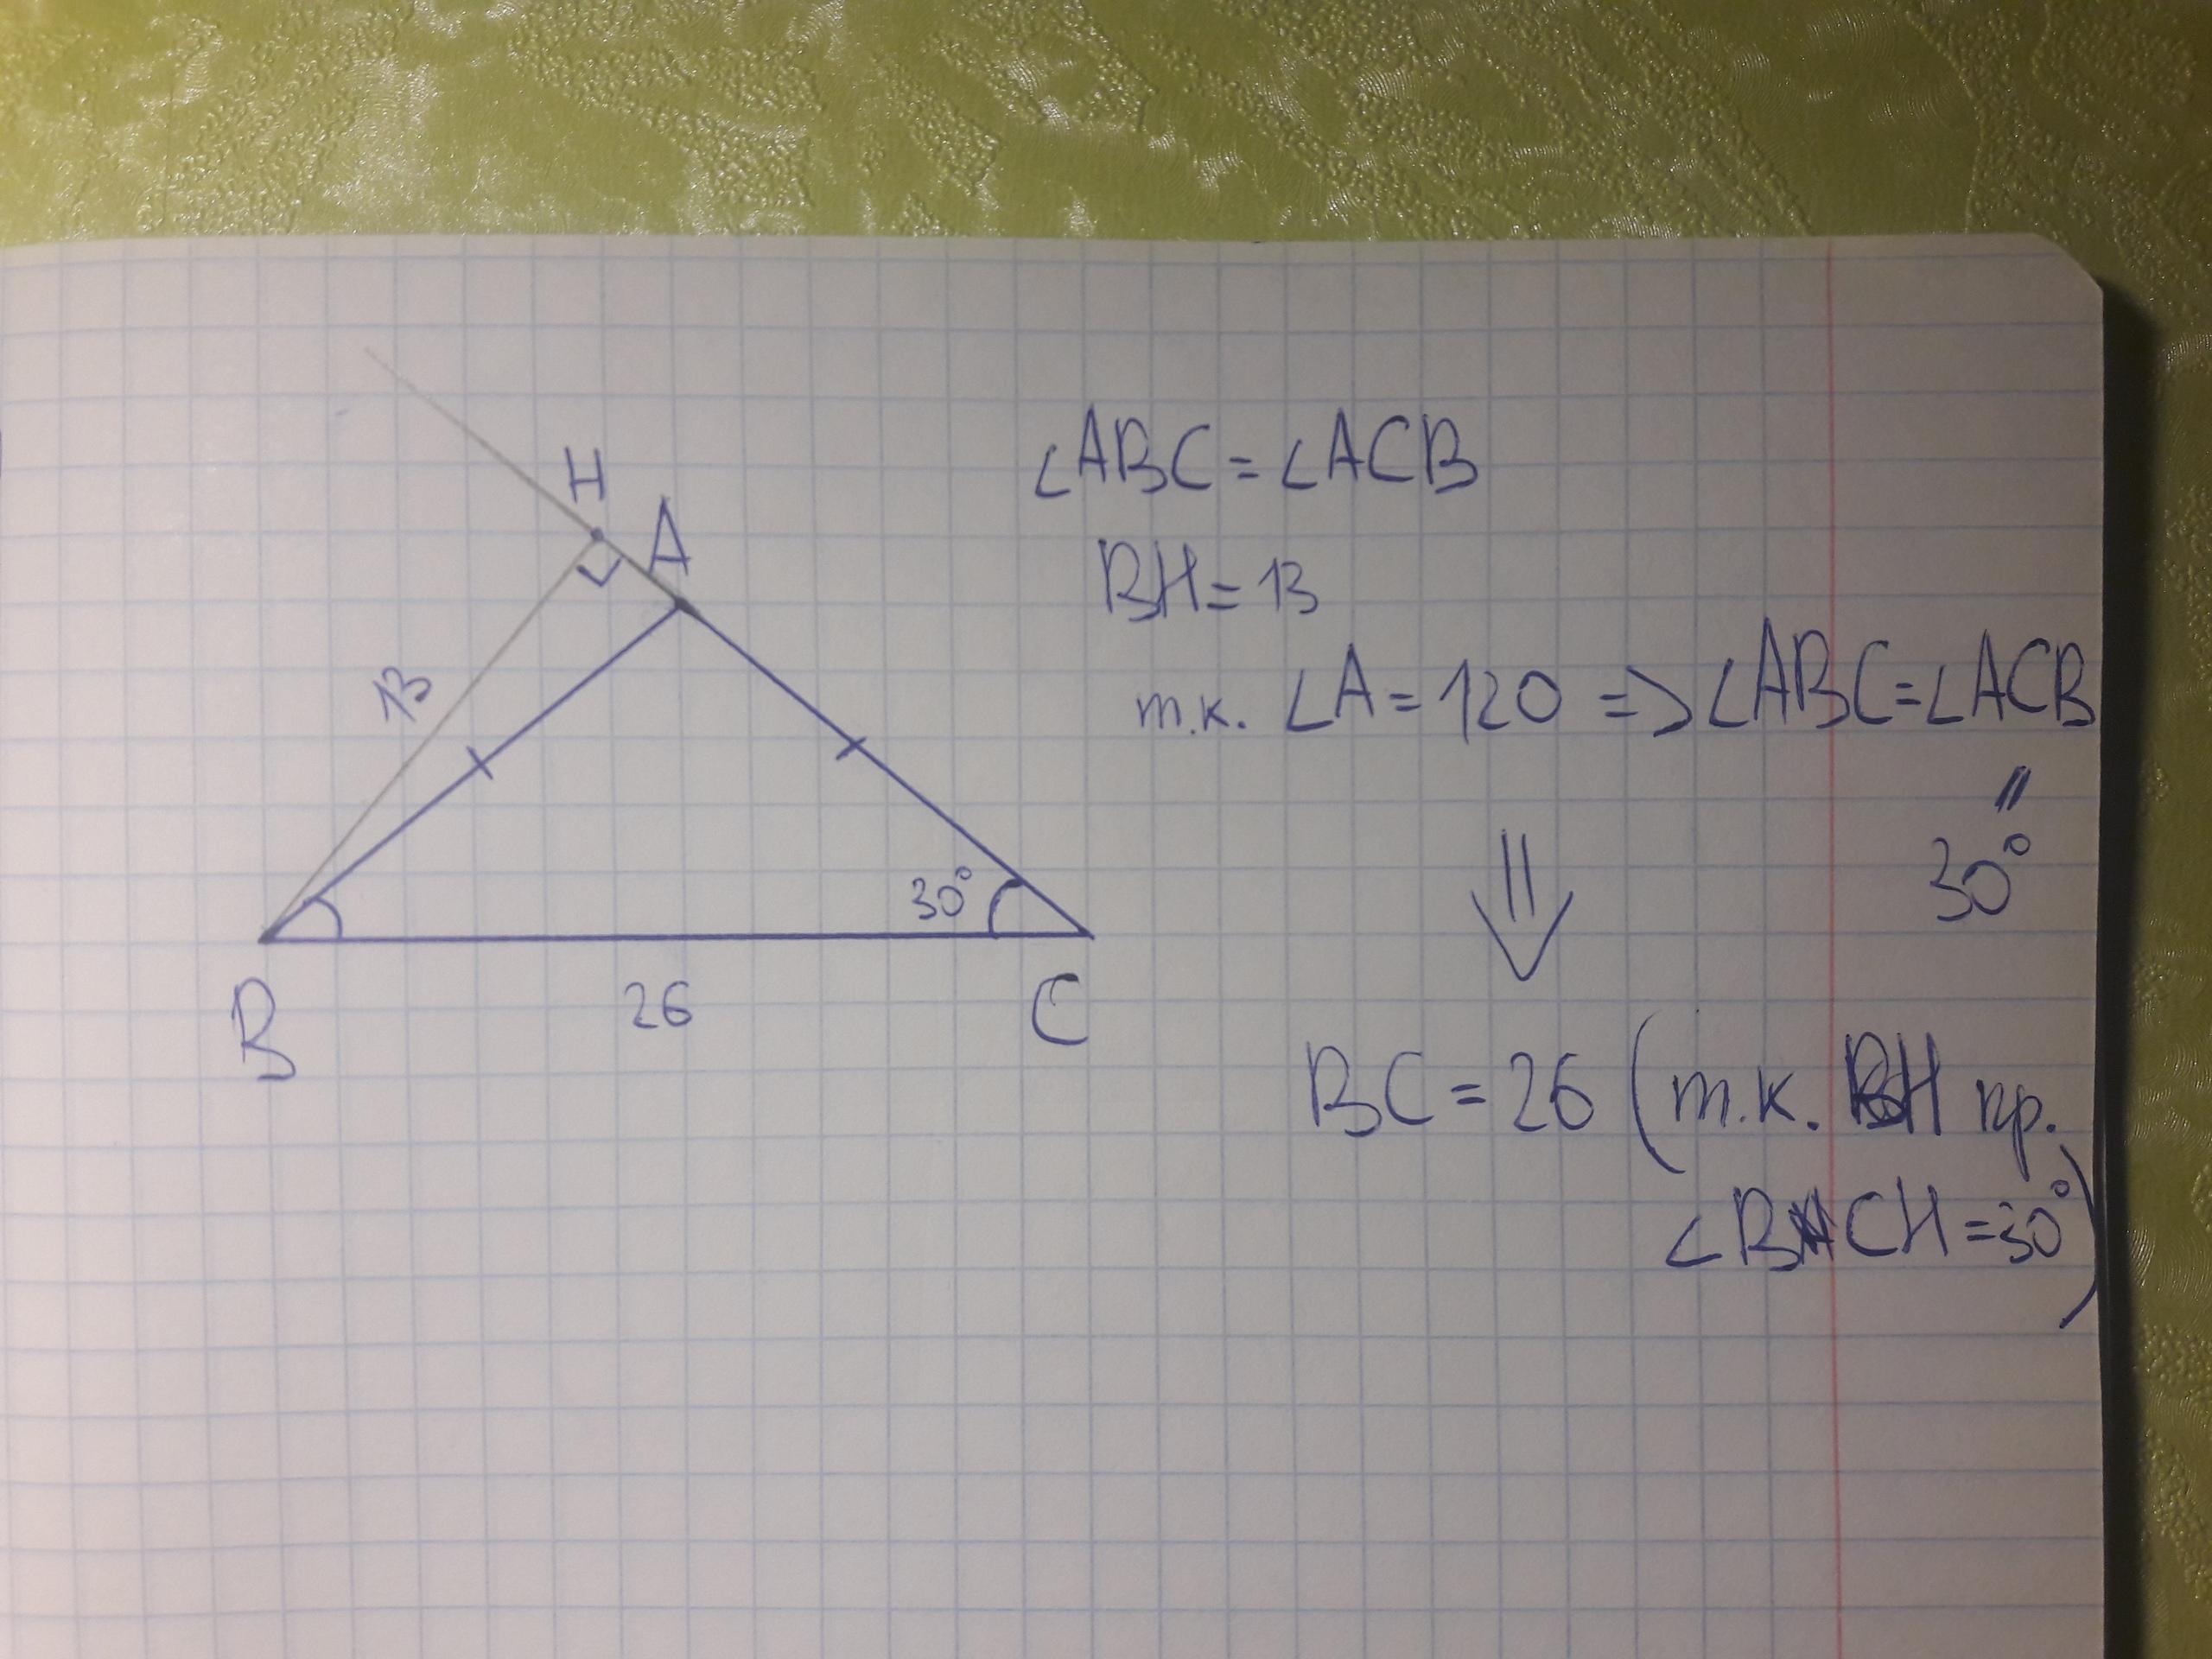 H
A
13
30°
B
26
C
∠ABC = ∠ACB
BH = 13
т.к. ∠A = 120 => ∠ABC = ∠ACB
||
30°
BC = 26 (т.к. BH пр.
∠BCH = 30°)